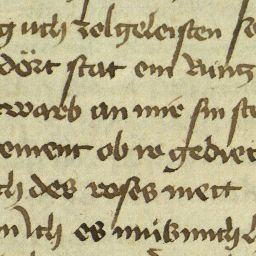 g uch zolgeleisten
dört stat ein kung
rwarb an mir sin
ement ob ir gedie
ch des roses mett
Ich es mus mich